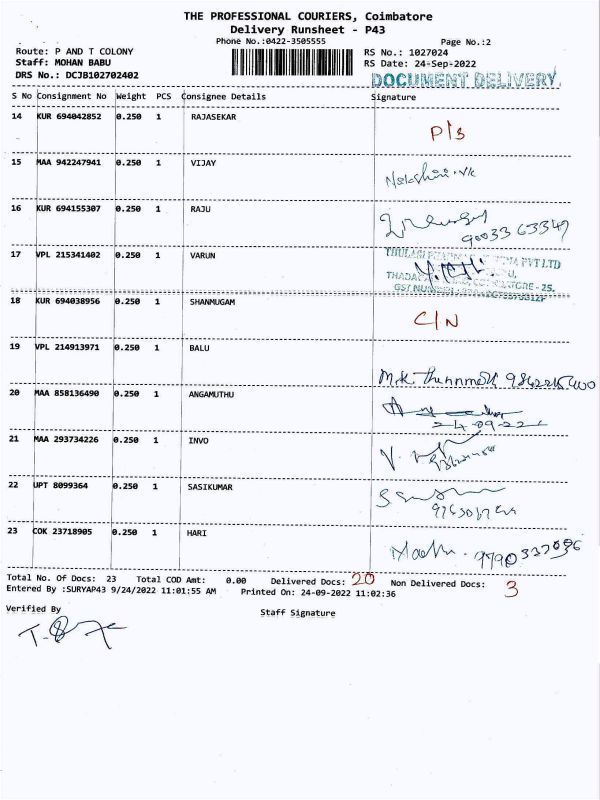 THE PROFESSIONAL COURIERS, Coimbatore
Delivery Runsheet - P43
Phone No.:0422-3505555
Page No.:2
Route: P AND T COLONY
RS No.: 1027024
Staff: MOHAN BABU
RS Date: 24-Sep-2022
DRS No.: DCJB102702402
DOCUMENT DELIVERY
S No Consignment No Weight PCS Consignee Details Signature
14 KUR 694042852 0.250 1 RAJASEKAR
P/S
15 MAA 942247941 0.250 1 VIJAY
16 KUR 694155307 0.250 1 RAJU
9003363347
17 VPL 215341402 0.250 1 VARUN
THULASI PVT LTD
COIMBATORE - 25.
18 KUR 694038956 0.250 1 SHANMUGAM
C/N
19 VPL 214913971 0.250 1 BALU
M.K.
20 MAA 858136490 0.250 1 ANGAMUTHU
24-09-22
21 MAA 293734226 0.250 1 INVO
22 UPT 8099364 0.250 1 SASIKUMAR
23 COK 23718905 0.250 1 HARI
Total No. Of Docs: 23 Total COD Amt: 0.00 Delivered Docs: 20 Non Delivered Docs: 3
Entered By :SURYAP43 9/24/2022 11:01:55 AM Printed On: 24-09-2022 11:02:36
Verified By
Staff Signature